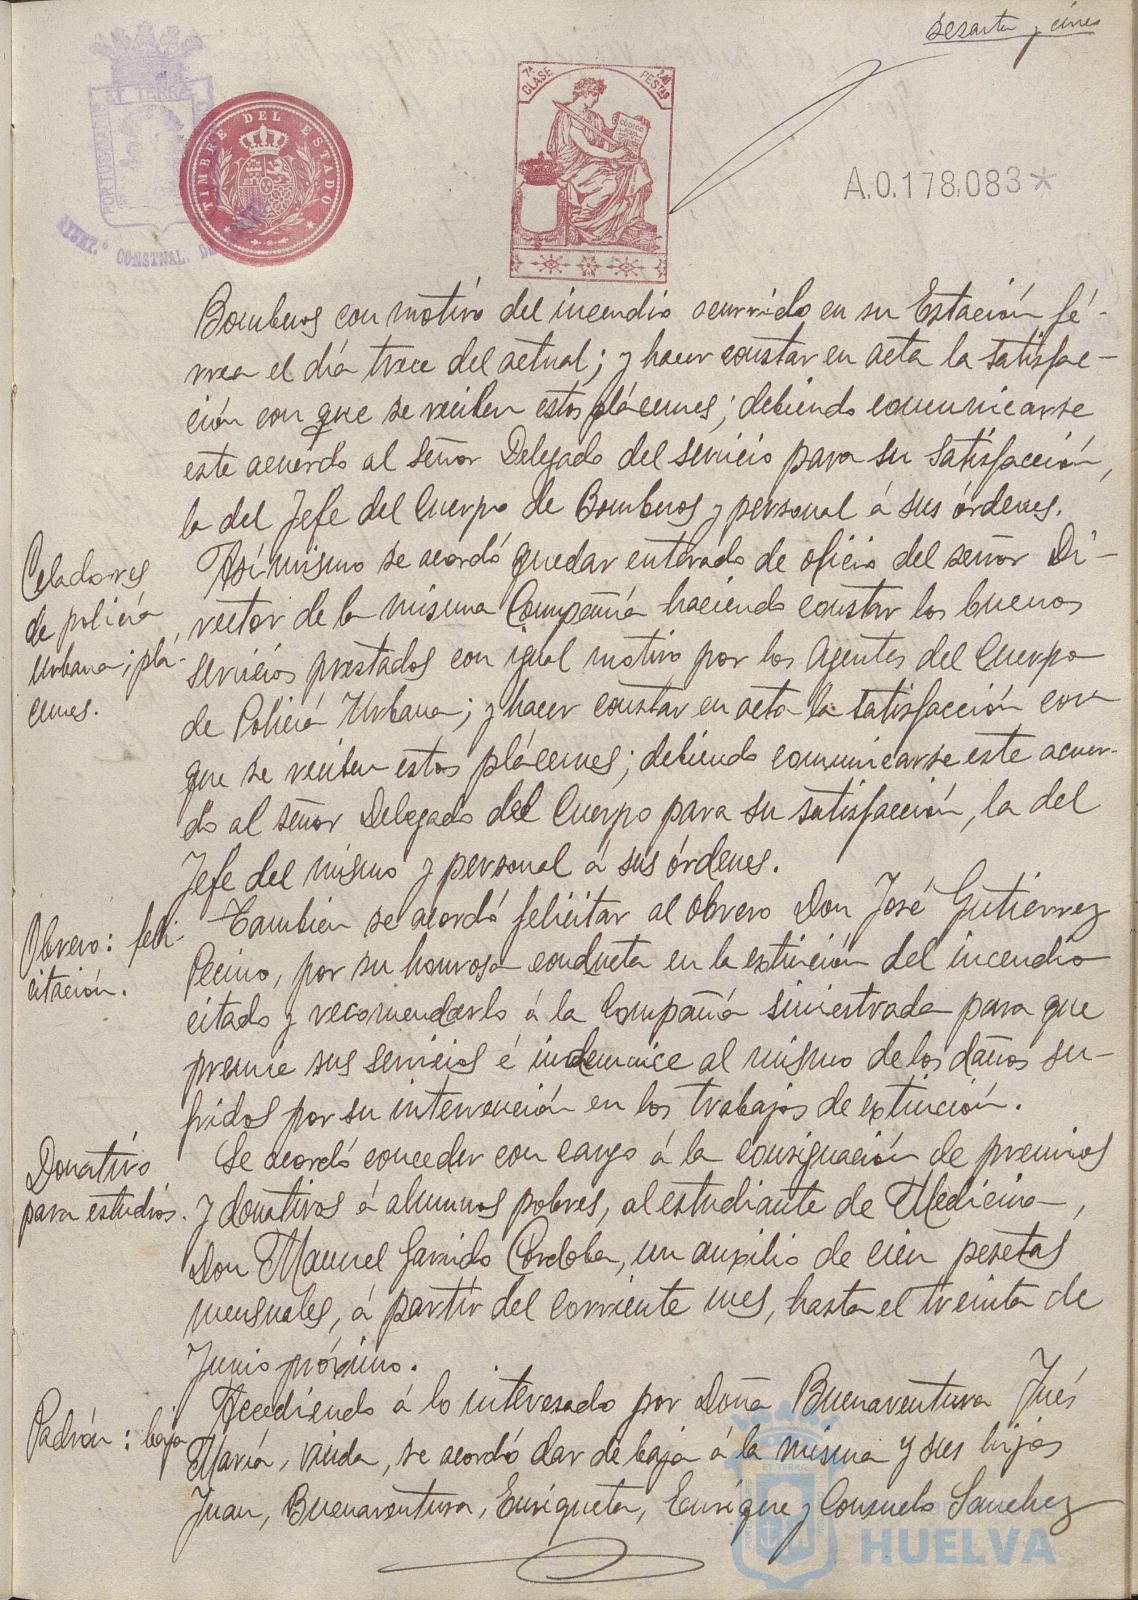 sesenta y cinco
ET TERRA
PORTUS MARIS
AYUNT.º CONSTNAL. DE
TIMBRE DEL ESTADO
7ª CLASE
PESETAS
CODIGO
A.0.178,083*
Bomberos con motivo del incendio ocurrido en su Estación fé-
rrea el día trece del actual; y hacer constar en acta la satisfac-
ción con que se reciben estos plácemes; debiendo comunicarse
este acuerdo al señor Delegado del servicio para su satisfacción,
la del Jefe del Cuerpo de Bomberos y personal á sus órdenes.
Celadores
de policía
Urbana; plá-
cemes.
Asímismo se acordó quedar enterado de oficio del señor Di-
rector de la misma Compañía haciendo constar los buenos
servicios prestados con igual motivo por los Agentes del Cuerpo
de Policía Urbana; y hacer constar en acta la satisfacción con
que se reciben estos plácemes; debiendo comunicarse este acuer-
do al señor Delegado del Cuerpo para su satisfacción, la del
Jefe del mismo y personal á sus órdenes.
Obrero: feli-
citación.
También se acordó felicitar al obrero Don José Gutiérrez
Pecino, por su honrosa conducta en la extinción del incendio
citado y recomendarlo á la Compañía siniestrada para que
premie sus servicios é indemnice al mismo de los daños su-
fridos por su intervención en los trabajos de extinción.
Donativo
para estudios.
Se acordó conceder con cargo á la consignación de premios
y donativos á alumnos pobres, al estudiante de Medicina,
Don Manuel Garrido Córdoba, un auxilio de cien pesetas
mensuales, á partir del corriente mes, hasta el treinta de
Junio próximo.
Padrón: baja
Accediendo á lo interesado por Doña Buenaventura Inés
María, viuda, se acordó dar de baja á la misma y sus hijos
Juan, Buenaventura, Enriqueta, Enrique y Consuelo Sanchez
HUELVA